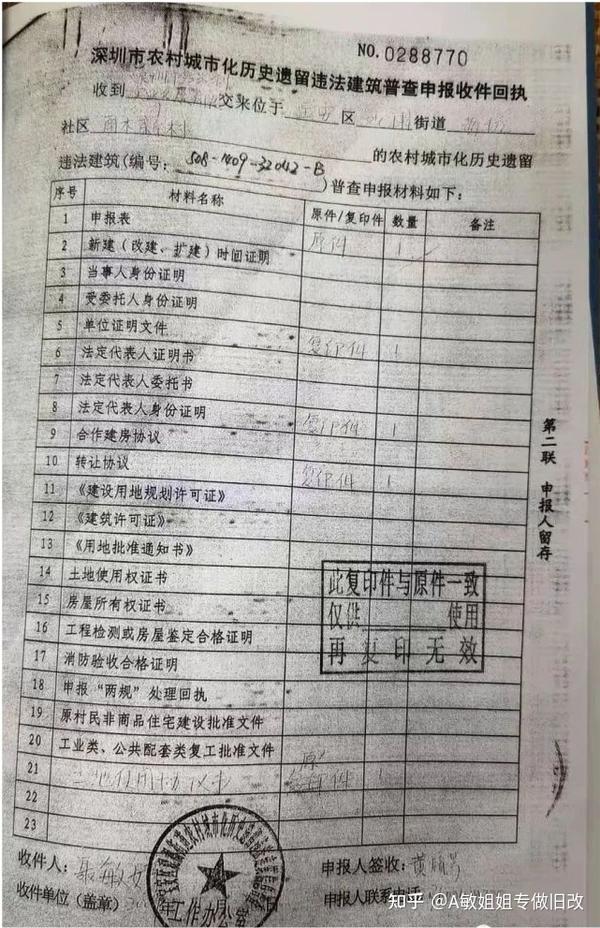 NO.0288770
深圳市农村城市化历史遗留违法建筑普查申报收件回执
收到 交来位于 区 街道
社区
违法建筑(编号: 508-1409-32042-B 的农村城市化历史遗留
)普查申报材料如下:
序号 材料名称 原件/复印件 数量 备注
1 申报表 原件 1
2 新建(改建、扩建)时间证明
3 当事人身份证明
4 受委托人身份证明
5 单位证明文件 复印件 1
6 法定代表人证明书
7 法定代表人委托书
8 法定代表人身份证明 复印件 1
9 合作建房协议
10 转让协议 复印件 1
11 《建设用地规划许可证》
12 《建筑许可证》
13 《用地批准通知书》
14 土地使用权证书
15 房屋所有权证书
16 工程检测或房屋鉴定合格证明
17 消防验收合格证明
18 申报“两规”处理回执
19 原村民非商品住宅建设批准文件
20 工业类、公共配套类复工批准文件
21 土地使用协议书 复印件 1
22
23
此复印件与原件一致
仅供 使用
再复印无效
第二联 申报人留存
收件人: 申报人签收:
收件单位(盖章) 申报人联系电话
工作办公室
知乎 @A敏姐姐专做旧改